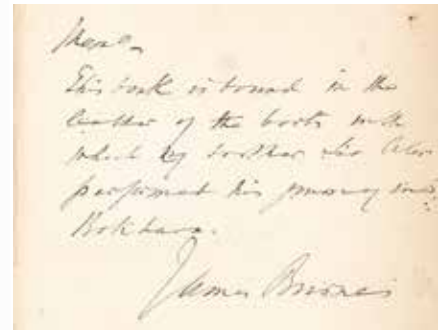 Memo
This book is bound in the
leather of the boots with
which my brother Sir Alexr
performed his journey into
Bokhara.
James Burnes